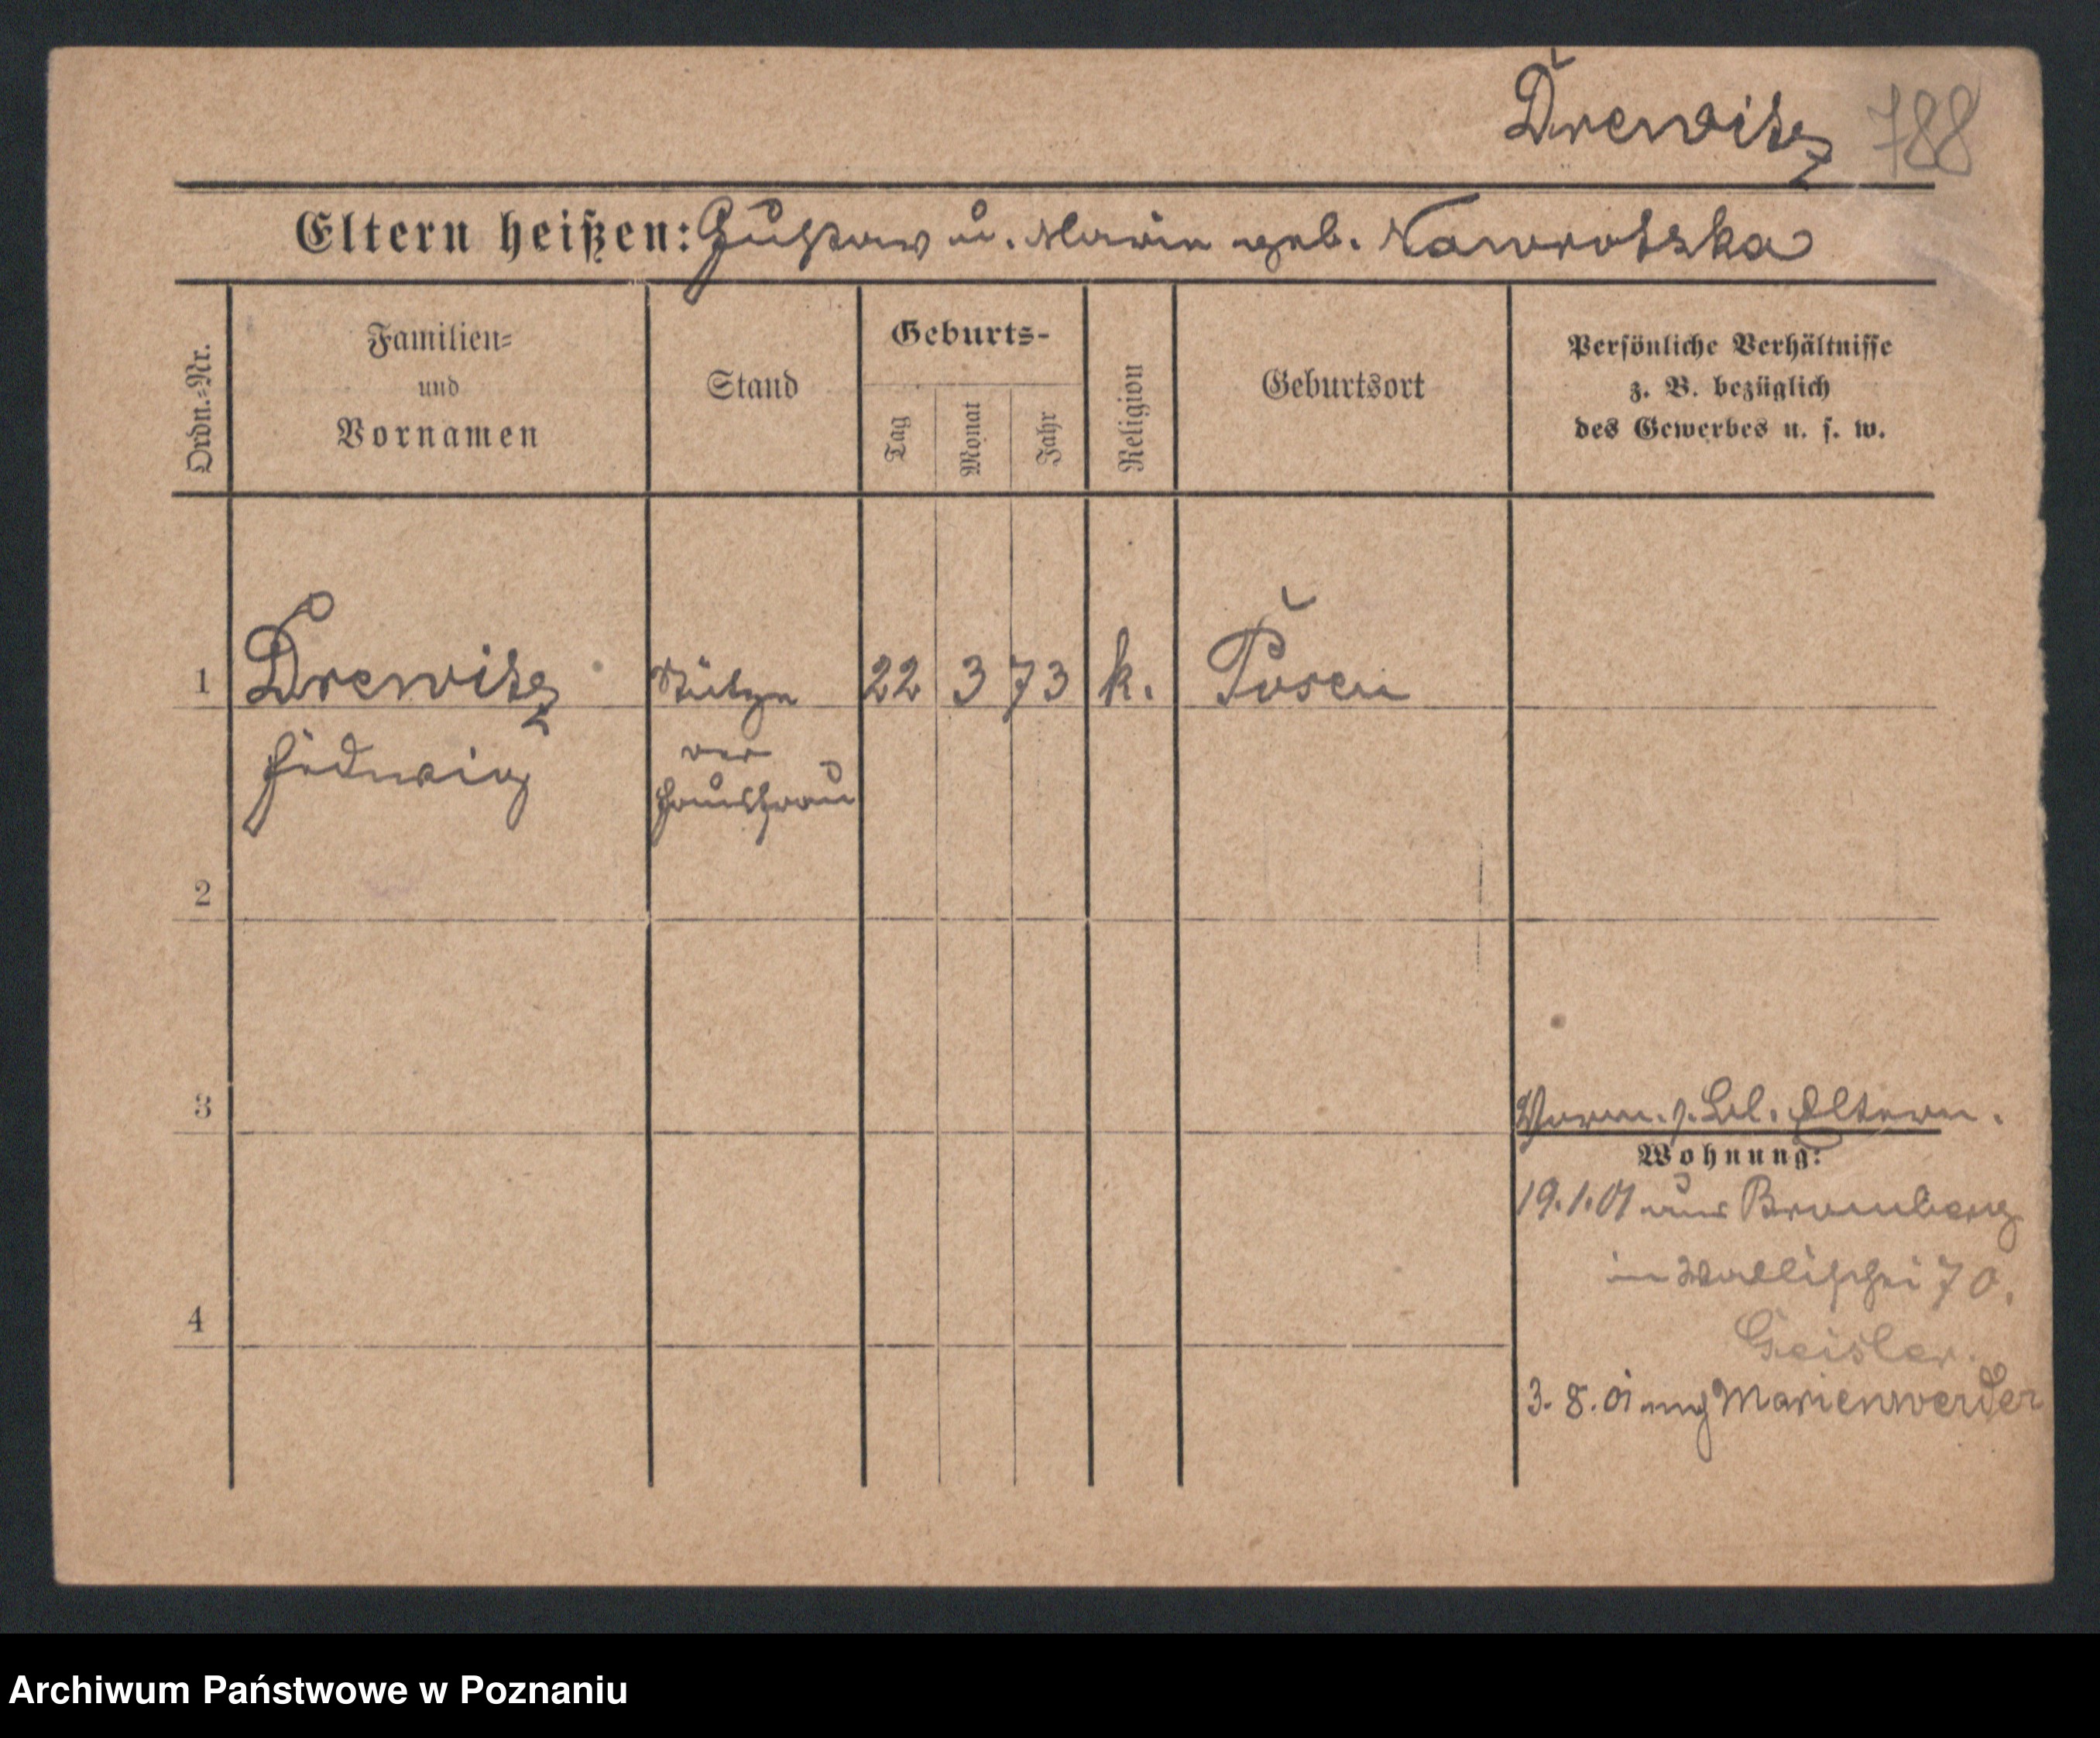 Drewitz 788
Eltern heißen: Gustav u. Marie geb. Nawrotzka
Ordn.-Nr.
Familien-
und
Vornamen
Stand
Geburts-
Tag
Monat
Jahr
Religion
Geburtsort
Persönliche Verhältnisse
z. B. bezüglich
des Gewerbes u. s. w.
1 Drewitz Stütze 22 3 73 k. Posen
Hedwig der
Hausfrau
2
3
Verm. s. Bl. Eltern.
Wohnung:
19.1.01 aus Bromberg
in Wallischei 70.
4
Geisler.
3.8.01 Marienwerder
Archiwum Państwowe w Poznaniu